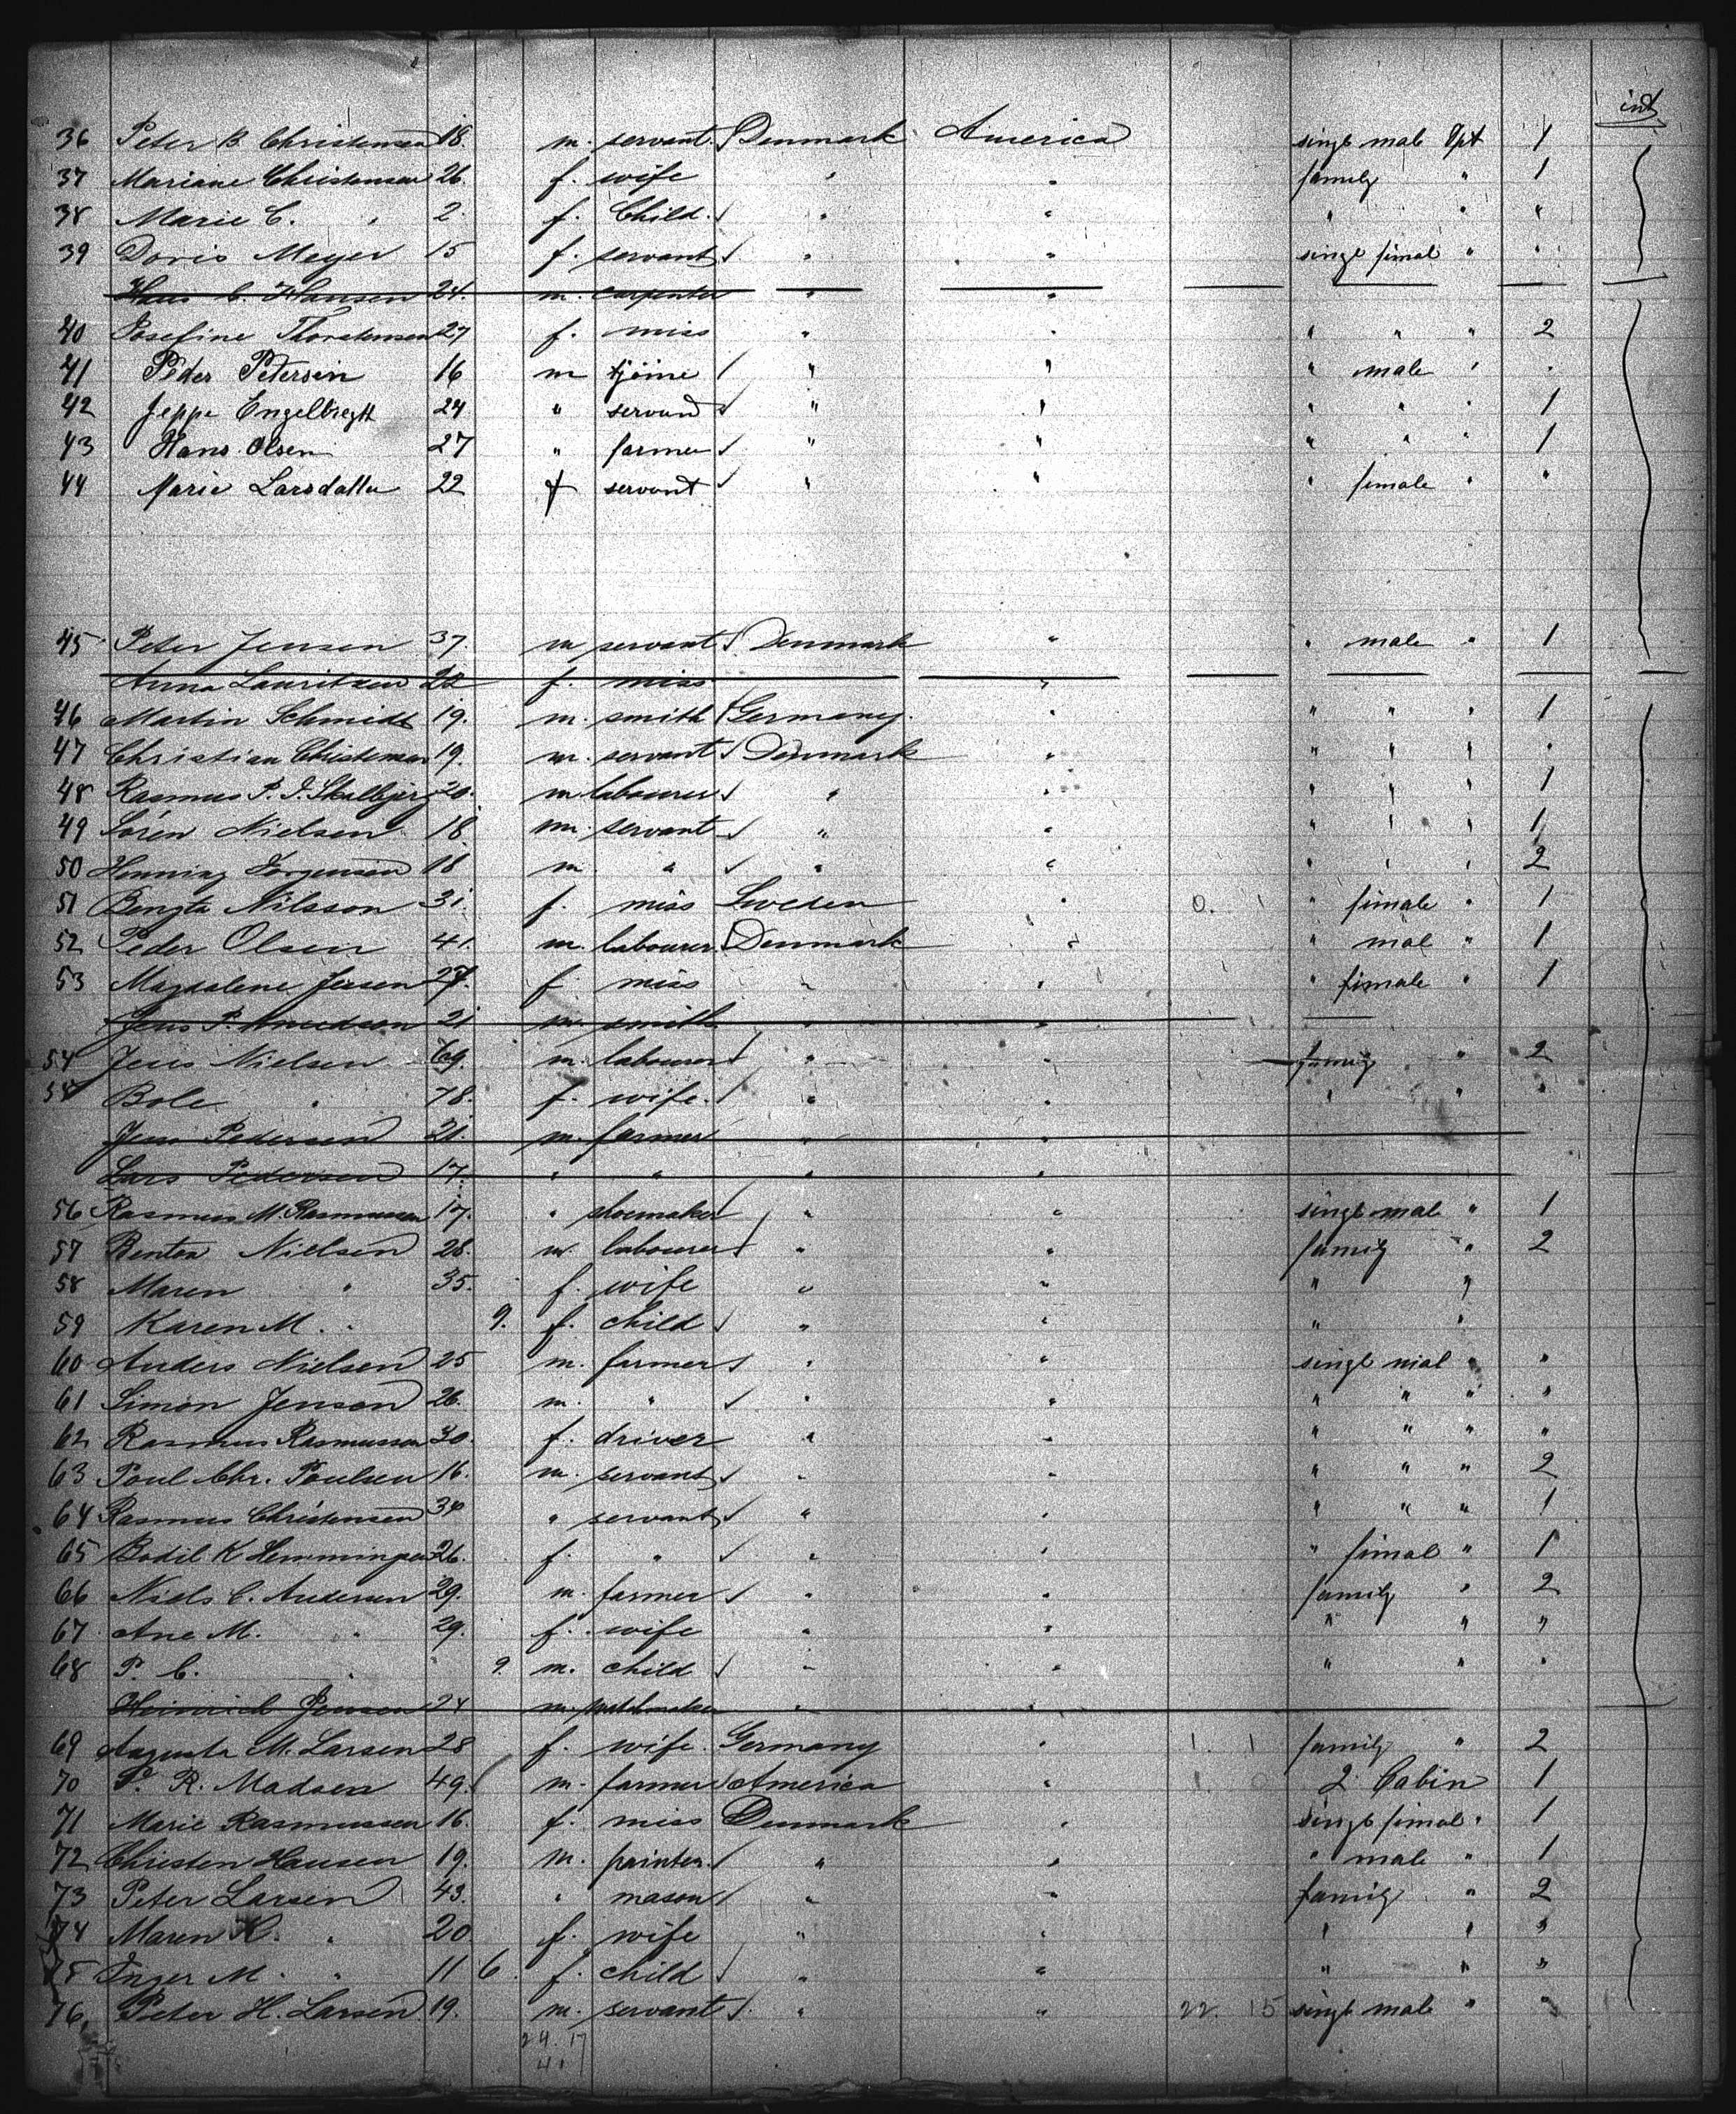 int
36 Peter B. Christensen 18. m. servant. Denmark America singl male Dpt 1
37 Mariane Christensen 26. f. wife " " family " 1
38 Marie C. " 2. f. Child. " " " " "
39 Doris Meyer 15 f. servant " " singl fimal " "
Hans C. Hansen 24. m. carpenter " "
40 Josefine Thorstensen 27 f. miss " " " " " 2
41 Peder Petersen 16 m tjéine " " " male " "
42 Jeppe Engelbregtt 24 " servand " " " " " 1
43 Hans Olsen 27 " farmer " " " " " 1
44 Marie Larsdatter 22 f servant " " " female " "
45 Peter Jensen 37. m servant Denmark " " male " 1
Anna Lauritzen 22 f. miss "
46 Martin Schmidt 19. m. smith Germany. " " " " 1
47 Christian Christensen 19. m. servant Denmark " " " " "
48 Rasmus P. J. Skalbjerg 20. m labourer " " " " " 1
49 Sören Nielsen 18. m. servant " " " " " 1
50 Henning Jorgensen 18 m. " " " " " " 2
51 Bengta Nilsson 31. f. miss Sweden " 0. 1 " fimale " 1
52 Peder Olsen 41. m. labourer. Denmark " " mal " 1
53 Magdalene Jensen 27. f. miss " " " fimale " 1
Jens P. 21 m. smith " "
54 Jens Nielsen 69. m. labourer " " family " 2
55 Bole " 78. f. wife. " " " " "
Jens Pedersen 21. m. farmer " "
Lars Pedersen 17. " " " "
56 Rasmus M. Rasmussen 17. " shoemaker " " singl male " 1
57 Benton Nielsen 28. m. labourer " " family " 2
58 Maren " 35. f. wife " " " "
59 Karen M. " 9. f. child " " " "
60 Anders Nielsen 25 m. farmer " " singl mal " "
61 Simon Jensen 26. m. " " " " " " "
62 Rasmus Rasmussen 30. f. driver " " " " " "
63 Poul Chr. Poulsen 16. m. servant " " " " " 2
64 Rasmus Christensen 34 " servant " " " " " 1
65 Bodil K Hemmingsen 26. f. " " " " fimal " 1
66 Niels C. Andersen 29. m. farmer " " family " 2
67 Ane M. " 29. f. wife " " " " "
68 P. C. " 9. m. child " " " " "
Heinrich Jensen 24 m. " "
69 Augusta M. Larsen 28 f. wife. Germany " 1. 1 family " 2
70 P. R. Madsen 49. m. farmer America " 1 0 2 Cabin 1
71 Marie Rasmussen 16. f. miss Denmark " singl fimal " 1
72 Christen Hansen 19. m. painter. " " " male " 1
73 Peter Larsen 43. " mason " " family " 2
74 Maren K. " 20 f. wife " " " " "
75 Inger M. " 11 6. f. child " " " " "
76. Peter H. Larsen 19. m. servant " " 22. 15 singl male " "
24. 17
41